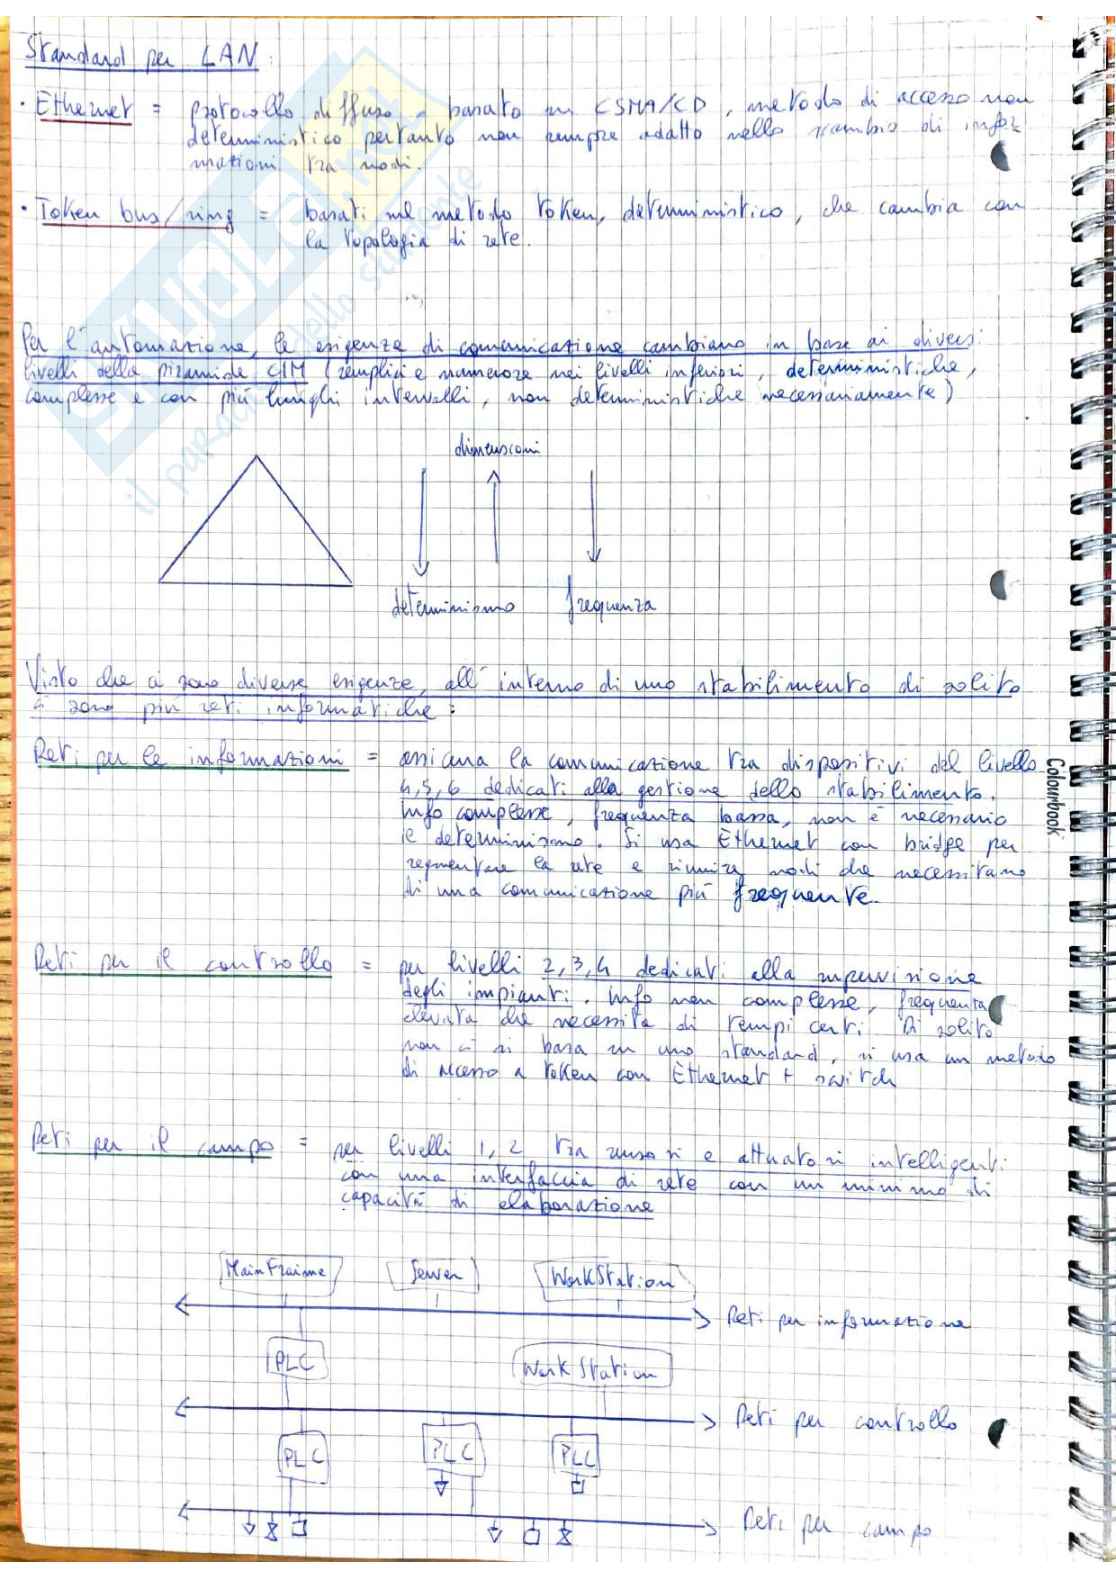 Standard per LAN :
• Ethernet = protocollo diffuso e basato su CSMA/CD, metodo di accesso non
deterministico pertanto non sempre adatto nello scambio di infor
mazioni tra nodi.
• Token bus/ring = basati sul metodo token, deterministico, che cambia con
la topologia di rete.
Per l'automazione, le esigenze di comunicazione cambiano in base ai diversi
livelli della piramide CIM (semplici e numerose nei livelli inferiori, deterministiche,
complesse e con più lunghi intervalli, non deterministiche necessariamente)
dimensioni
determinismo frequenza
Visto che ci sono diverse esigenze, all'interno di uno stabilimento di solito
ci sono più reti informatiche :
Reti per le informazioni = assicura la comunicazione tra dispositivi del livello
4,5,6 dedicati alla gestione dello stabilimento.
Info complesse, frequenza bassa, non è necessario
il determinismo. Si usa Ethernet con bridge per
segmentare la rete e riunire nodi che necessitano
di una comunicazione più frequente.
Reti per il controllo = per livelli 2,3,4 dedicati alla supervisione
degli impianti. Info non complesse, frequenza
elevata che necessita di tempi certi. Di solito
non ci si basa su uno standard, si usa un metodo
di accesso a token con Ethernet + switch
Reti per il campo = per livelli 1,2 tra sensori e attuatori intelligenti
con una interfaccia di rete con un minimo di
capacità di elaborazione
MainFraime Server WorkStation
Reti per informazione
PLC Work Station
Reti per controllo
PLC PLC PLC
Reti per campo
Colourbook
SKUOLA.net
il paradiso dello studente